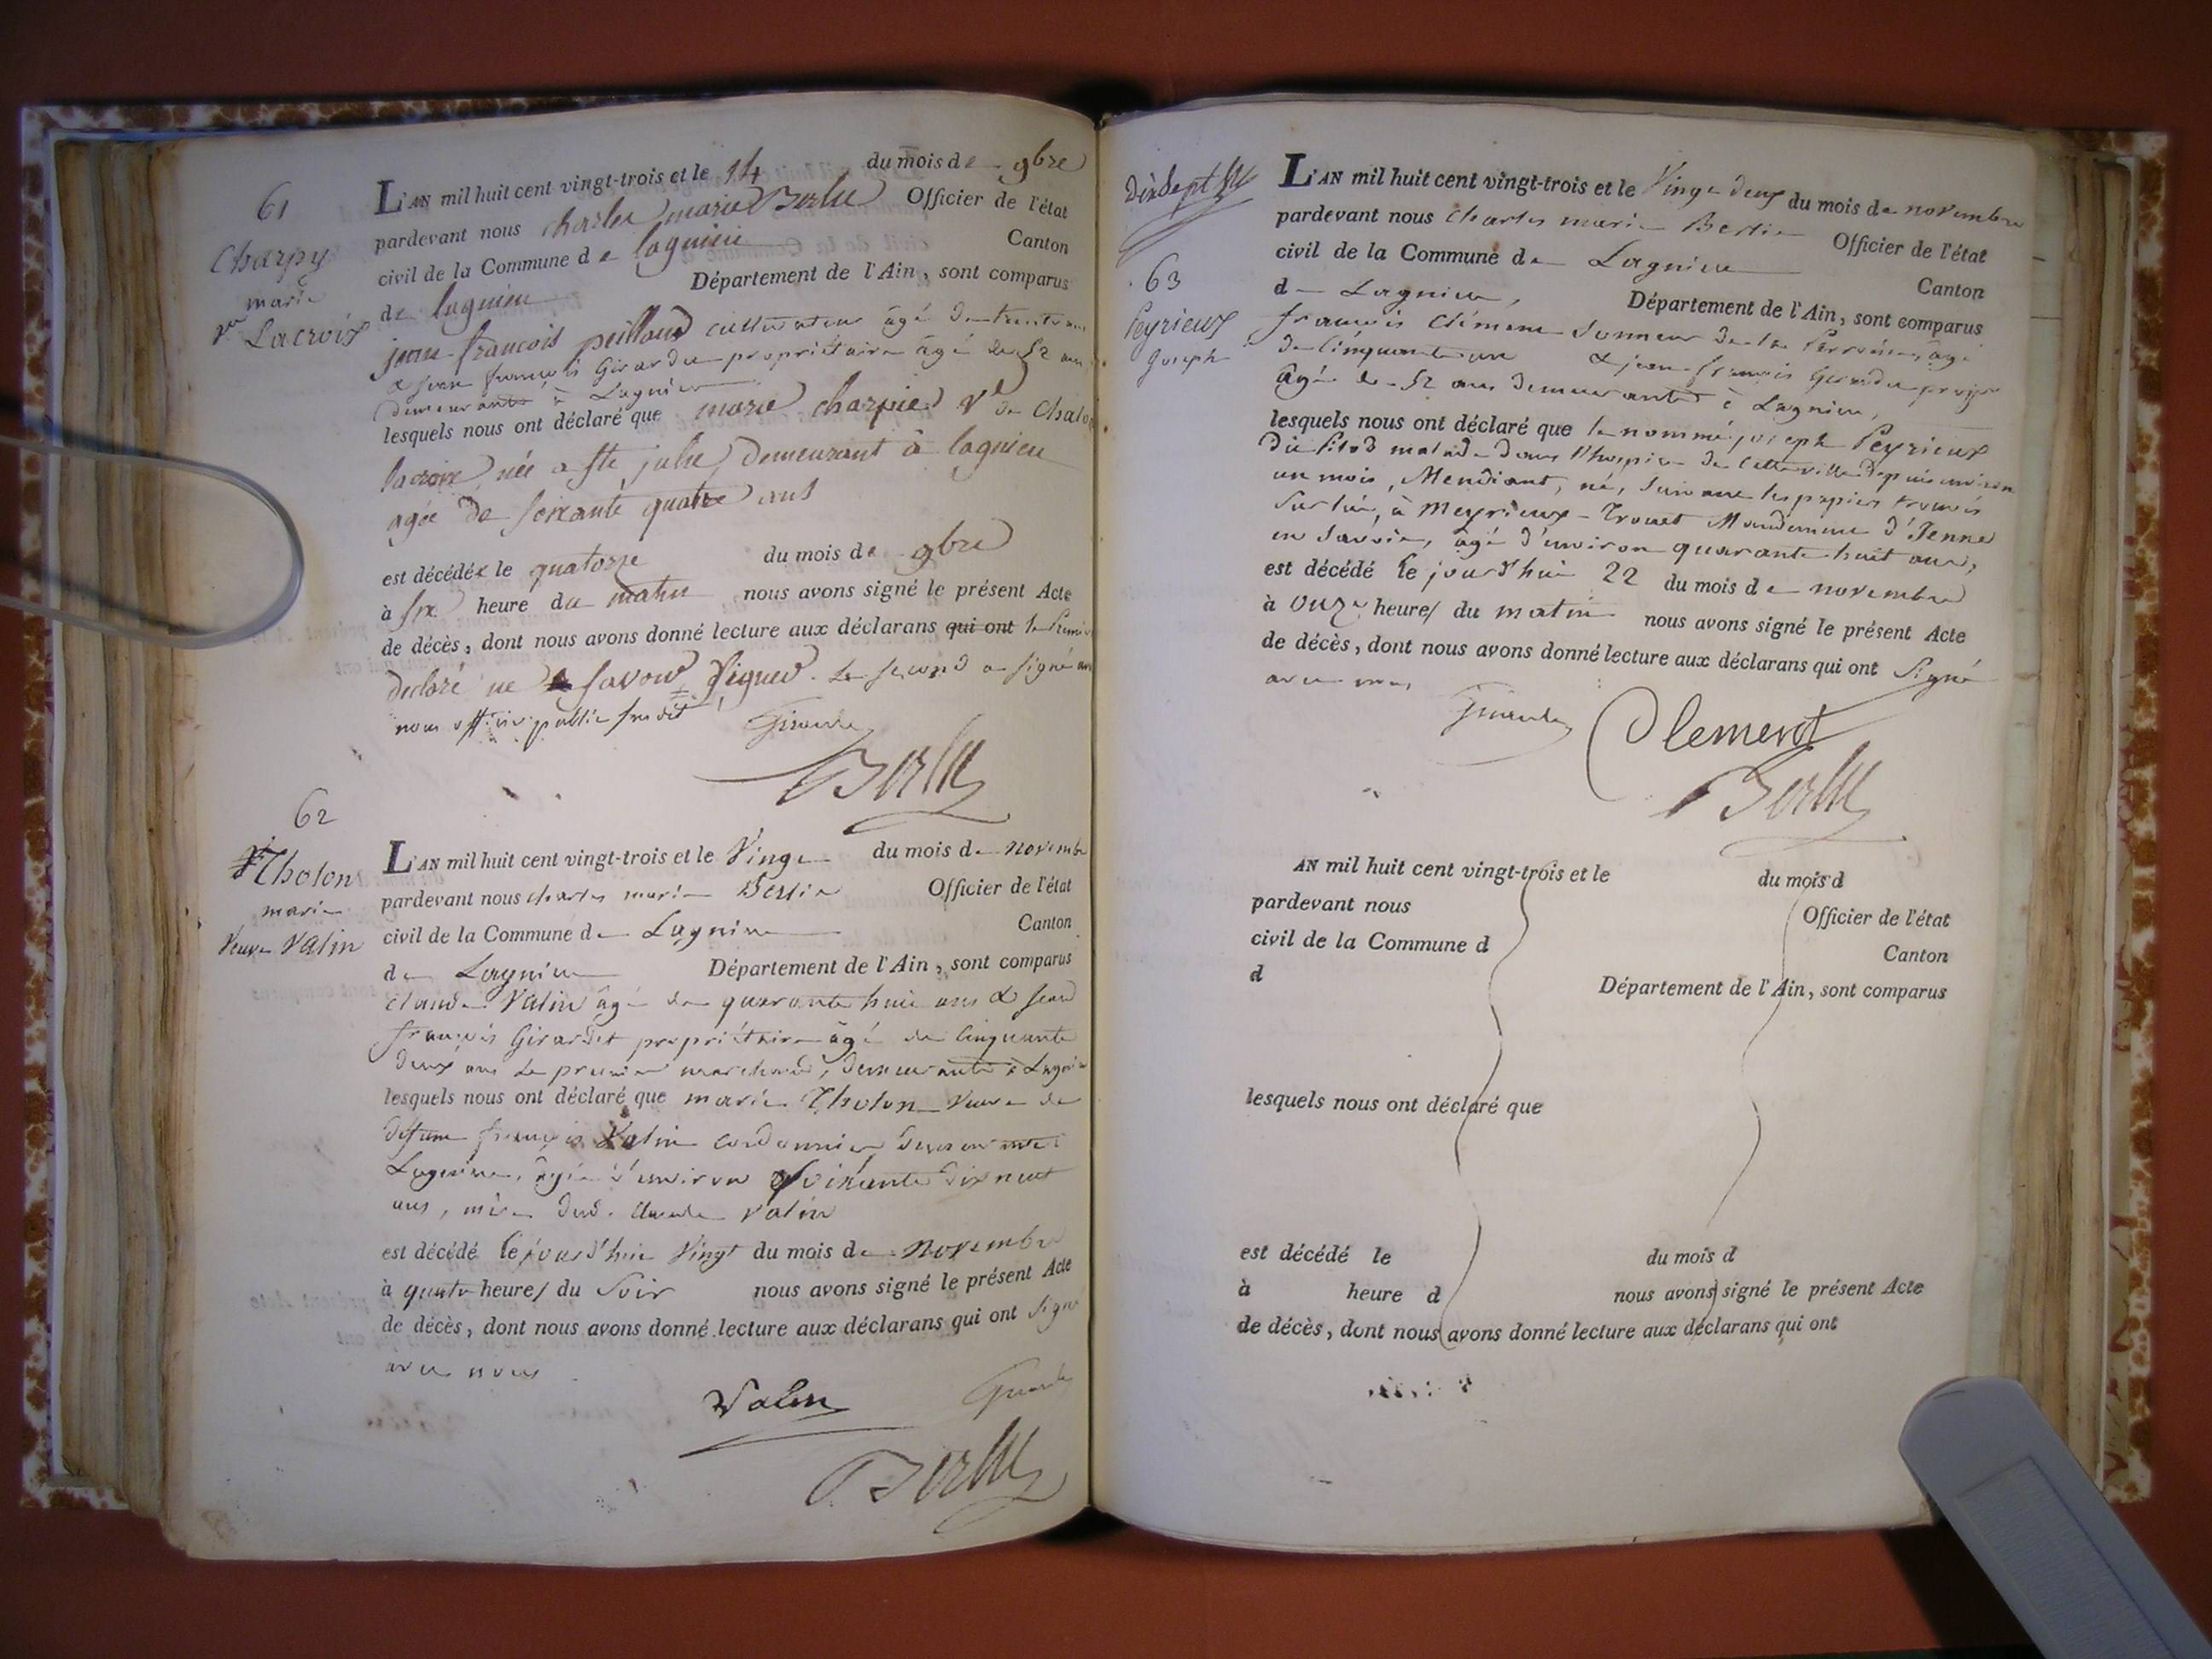 61
Charpy
marie
Vve Lacroix
L'AN mil huit cent vingt-trois et le 14 du mois de 9bre
pardevant nous charles marie Berlie Officier de l'état
civil de la Commune de lagnieu Canton
de lagnieu Département de l'Ain, sont comparus
jean francois peilloud cultivateur âgé de trente ans
& jean françois Girardet propriétaire âgé de 52 ans
demeurants à Lagnieu
lesquels nous ont déclaré que marie charpied Ve de
lacroix née a ste julie demeurant à lagnieu
agée de soixante quatre ans
est décédée le quatorze du mois de 9bre
à six heure du matin nous avons signé le présent Acte
de décès, dont nous avons donné lecture aux déclarans qui ont le Premier
declaré ne savoir signer. Le second a signé avec
nous officier public susdit
Girardet
Berlie
62
Tholon
marie
Veuve Valin
L'AN mil huit cent vingt-trois et le Vingt du mois de novembre
pardevant nous charles marie Berlie Officier de l'état
civil de la Commune de Lagnieu Canton
de Lagnieu Département de l'Ain, sont comparus
claude Valin âgé de quarante huit ans & jean
françois Girardet propriétaire âgé de cinquante
deux ans le premier marchand, demeurants à Lagnieu
lesquels nous ont déclaré que marie Tholon Veuve de
défunt françois Valin cordonnier demeurante à
Lagnieu, âgée d'environ soixante dix neuf
ans, mère dud. claude Valin
est décédé le jourd'hui Vingt du mois de Novembre
à quatre heures du Soir nous avons signé le présent Acte
de décès, dont nous avons donné lecture aux déclarans qui ont Signé
avec nous
Valin Girardet
Berlie
Dix Sept
63
Peyrieux
Joseph
L'AN mil huit cent vingt-trois et le Vingt deux du mois de novembre
pardevant nous Charles marie Berlie Officier de l'état
civil de la Commune de Lagnieu Canton
de Lagnieu, Département de l'Ain, sont comparus
françois Clément Sonneur de la Parroisse, âgé
de cinquante un & jean françois Girardet propre
âgé de 52 ans demeurants à Lagnieu,
lesquels nous ont déclaré que le nommé joseph Peyrieux
dit malade dans l'hospice de cette ville depuis environ
un mois, Mendiant, né, suivant les papiers trouvés
sur lui, à Meyrieux-Trouet Mandement d'Yenne
en Savoie, âgé d'environ quarante huit ans,
est décédé le jourd'hui 22 du mois de novembre
à onze heures du matin nous avons signé le présent Acte
de décès, dont nous avons donné lecture aux déclarans qui ont Signé
avec nous
Girardet Clement
Berlie
AN mil huit cent vingt-trois et le du mois d
pardevant nous Officier de l'état
civil de la Commune d Canton
d Département de l'Ain, sont comparus
lesquels nous ont déclaré que
est décédé le du mois d
à heure d nous avons signé le présent Acte
de décès, dont nous avons donné lecture aux déclarans qui ont